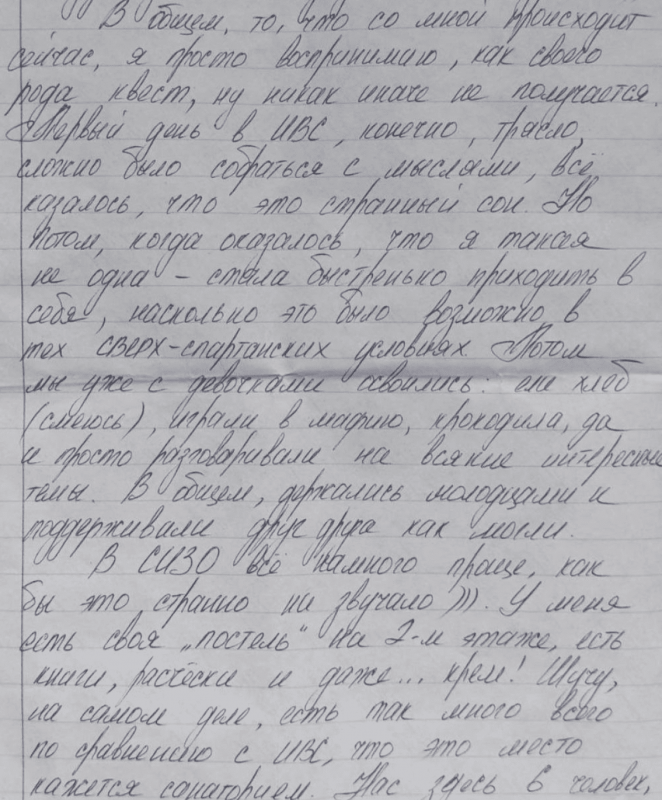 В общем, то, что со мной происходит
сейчас, я просто воспринимаю, как своего
рода квест, ну никак иначе не получается.
Первый день в ИВС, конечно, трясло,
сложно было собраться с мыслями, всё
казалось, что это странный сон. Но
потом, когда оказалось, что я такая
не одна – стала быстренько приходить в
себя, насколько это было возможно в
тех СВЕРХ-спартанских условиях. Потом
мы уже с девочками освоились: ели хлеб
(смеюсь), играли в мафию, крокодила, да
и просто разговаривали на всякие интересные
темы. В общем, держались молодцами и
поддерживали друг друга как могли.
В СИЗО всё намного проще, как
бы это странно ни звучало ))). У меня
есть своя „постель“ на 2-м этаже, есть
книги, расчёски и даже... крем! Шучу,
на самом деле, есть так много всего
по сравнению с ИВС, что это место
кажется санаторием. Нас здесь 6 человек,